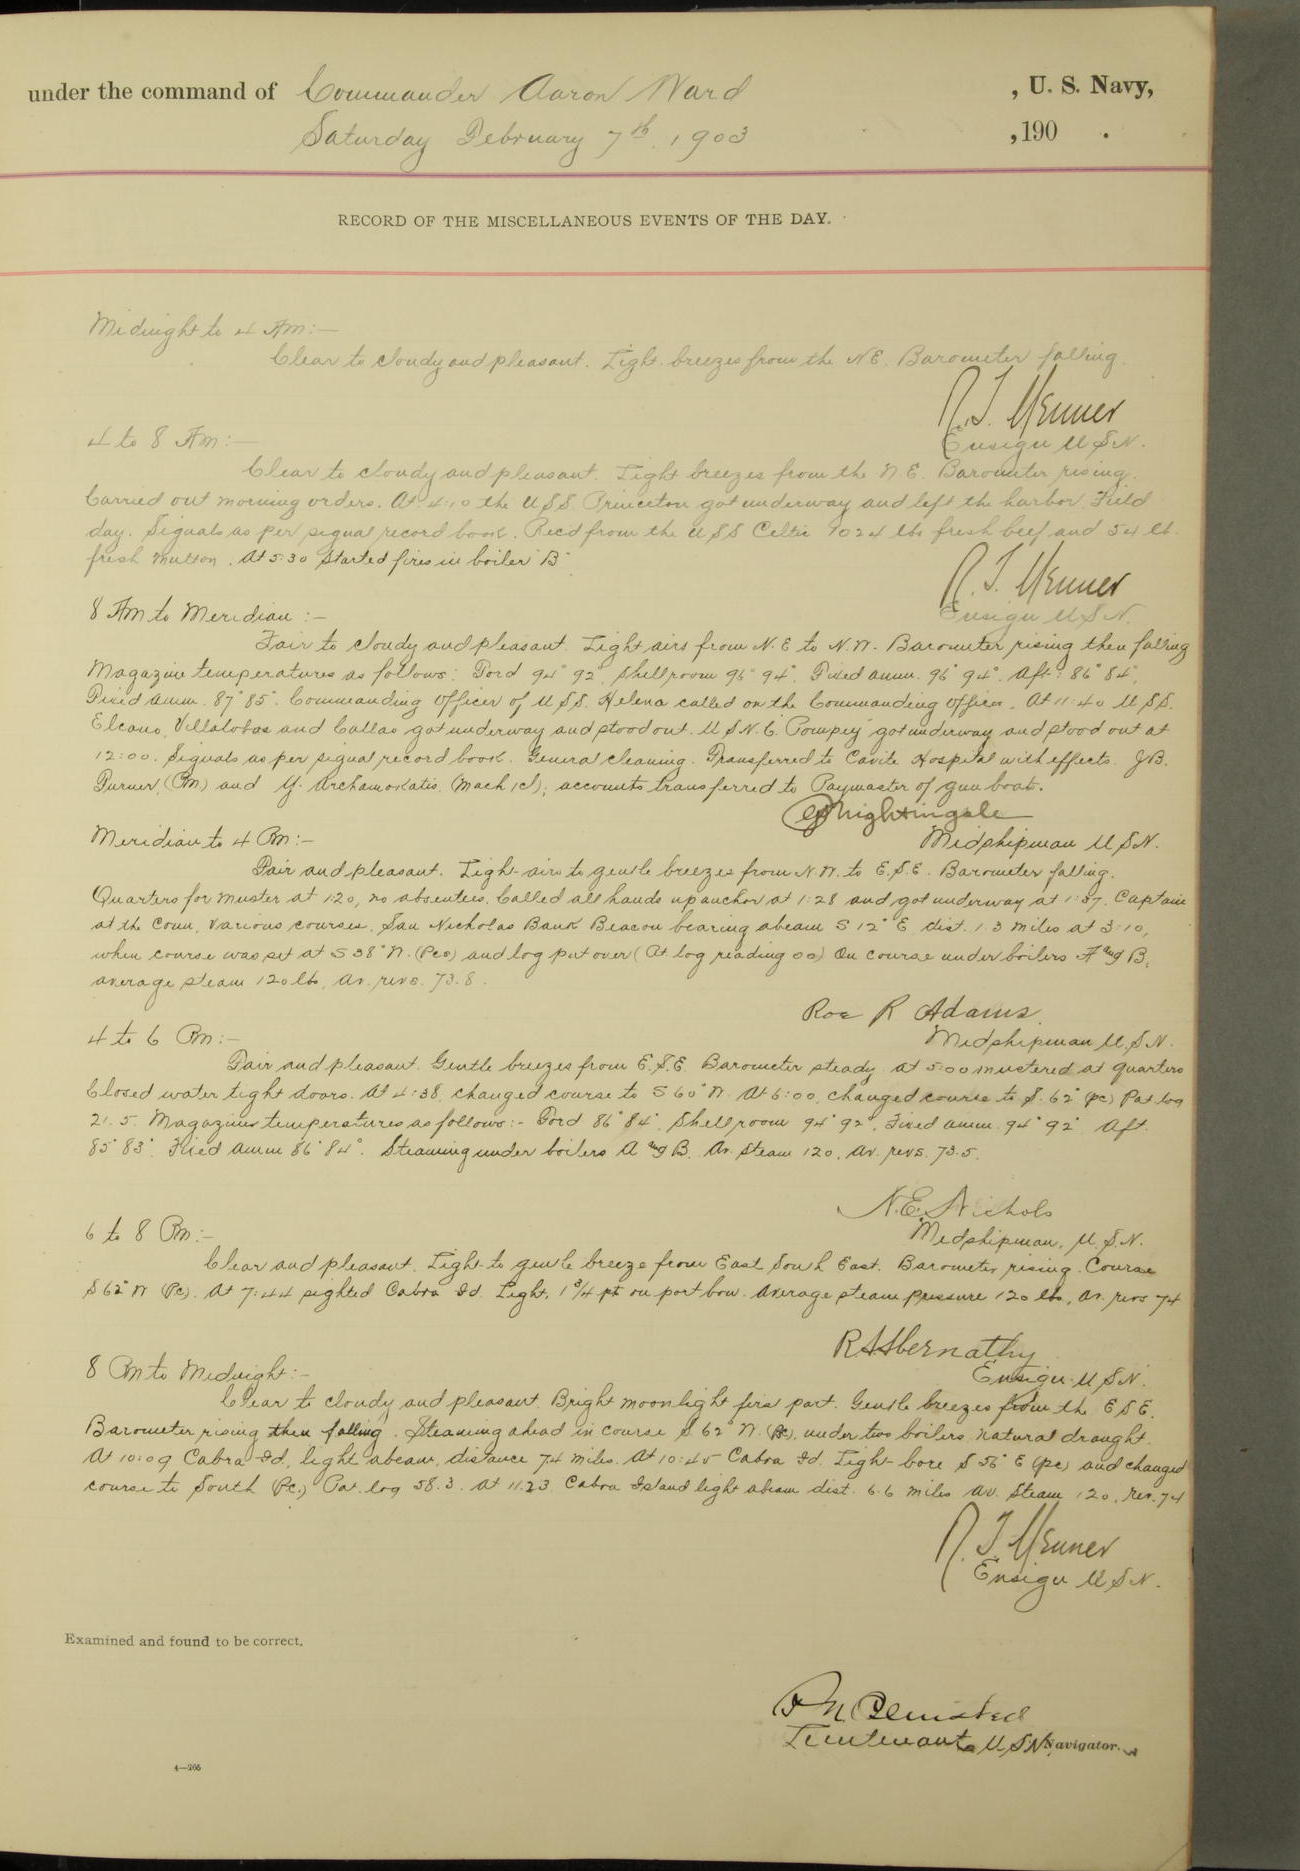 under the command of Commander Aaron Ward , U. S. Navy,
Saturday February 7th. 1903 , 190 .
RECORD OF THE MISCELLANEOUS EVENTS OF THE DAY.
Midnight to 4 Am:—
Clear to cloudy and pleasant. Light breezes from the NE. Barometer falling.
Ensign U.S.N.
4 to 8 Am:—
Clear to cloudy and pleasant. Light breezes from the N.E. Barometer rising.
Carried out morning orders. At 4:10 the U.S.S. Princeton got underway and left the harbor. Field
day. Signals as per signal record book. Rec'd from the U.S.S Celtic 1024 lbs fresh beef and 54 lb.
fresh mutton. At 5:30 Started fires in boiler "B"
Ensign U.S.N.
8 Am to Meridian :—
Fair to cloudy and pleasant. Light airs from N.E to N.W. Barometer rising then falling
Magazine temperatures as follows: Ford 94° 92°, Shell room 96° 94°. Fixed amm. 96° 94°. Aft: 86° 84°,
Fixed amm. 87° 85°. Commanding Officer of U.S.S. Helena called on the Commanding Officer. At 11:40 U.S.S.
Elcano, Villalobos and Callao got underway and stood out. U.S.N.C. Pompey got underway and stood out at
12:00. Signals as per signal record book. General cleaning. Transferred to Cavite Hospital with effects. J.B.
Turner, (Pm) and Y. (Mach 1cl); accounts transferred to Paymaster of gun boats.
Nightingale
Midshipman U.S.N.
Meridian to 4 Pm:—
Fair and pleasant. Light airs to gentle breezes from N.W. to E.S.E. Barometer falling.
Quarters for muster at 1:20, no absentees. Called all hands up anchor at 1:28 and got underway at 1:37. Captain
at the Conn, Various courses. San Nicholas Bank Beacon bearing abeam S 12° E. dist. 1.3 miles at 3:10,
when course was set at S 38° W. (Pcs) and log put over (At log reading 00) On course under boilers A and B,
average steam 120 lbs, Av. revs. 73.8.
Roe R Adams.
Midshipman U.S.N.
4 to 6 Pm:—
Fair and pleasant. Gentle breezes from E.S.E. Barometer steady. At 5:00 mustered at quarters
Closed water tight doors. At 4:38, changed course to S 60° W. At 6:00, changed course to S. 62° (pc) Pat log
21.5. Magazines temperatures as follows:- Ford 86° 84°, Shell room 94° 92°, Fixed amm. 94° 92° Aft.
85° 83°. Fixed amm 86° 84°. Steaming under boilers A and B. Av. Steam 120, Av. revs. 73.5.
N.E. Nichols
Midshipman, U.S.N.
6 to 8 Pm:—
Clear and pleasant. Light to gentle breeze from East South East. Barometer rising. Course
S 62° W (Pc). At 7:44 sighted Cabra Id. Light, 1 3/4 pt on port bow. Average steam pressure 120 lbs, Av. revs 74
Abernathy
Ensign U.S.N.
8 Pm to Midnight:—
Clear to cloudy and pleasant. Bright moonlight first part. Gentle breezes from the E S E.
Barometer rising then falling. Steaming ahead in course S 62° W. (Pc), under two boilers, natural draught.
At 10:09 Cabra Id, light abeam, distance 7.4 miles. At 10:45 Cabra Id. Light bore S 56° E (pc) and changed
course to South (Pc.) Pat. log 58.3. At 11.23 Cabra Island light abeam dist. 6.6 miles Av. Steam 120, rev. 74
Ensign U.S.N.
Examined and found to be correct.
Olmsted
Lieutenant U.S.N. Navigator.
4—265